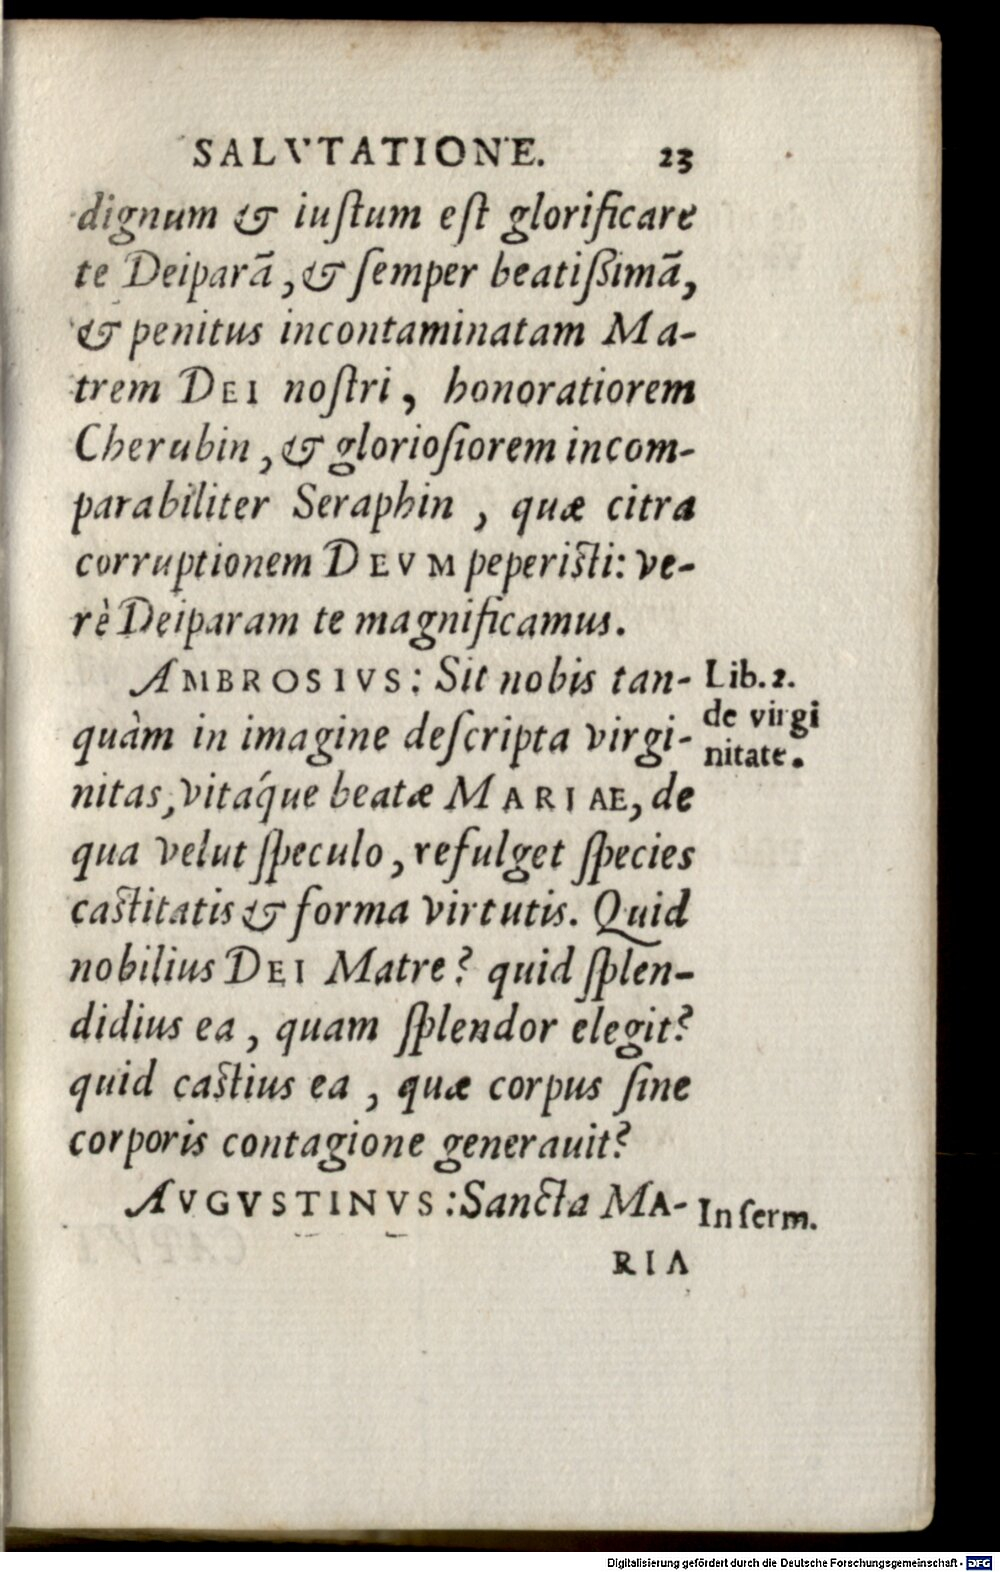 SALVTATIONE. 23
dignum & iuſtum eſt glorificare
te Deiparā, & ſemper beatiſsimā,
& penitus incontaminatam Ma-
trem DEI noſtri, honoratiorem
Cherubin, & glorioſiorem incom-
parabiliter Seraphin, quæ citra
corruptionem DEVM peperiſti: ve-
rè Deiparam te magnificamus.
AMBROSIVS: Sit nobis tan-
Lib. 2.
quàm in imagine deſcripta virgi-
de virgi
nitate.
nitas, vitáque beatæ MARIAE, de
qua velut ſpeculo, refulget ſpecies
caſtitatis & forma virtutis. Quid
nobilius DEI Matre? quid ſplen-
didius ea, quam ſplendor elegit?
quid caſtius ea, quæ corpus ſine
corporis contagione generauit?
AVGVSTINVS: Sancta MA-
In ſerm.
RIA
Digitalisierung gefördert durch die Deutsche Forschungsgemeinschaft - DFG